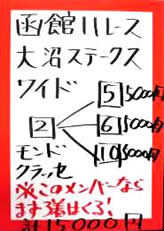 函館11レース
大沼ステークス
ワイド
5 5000円
2 6 5000円
10 5000円
モンド
クラッセ
※このメンバーなら
まず残はくる!
計15000円